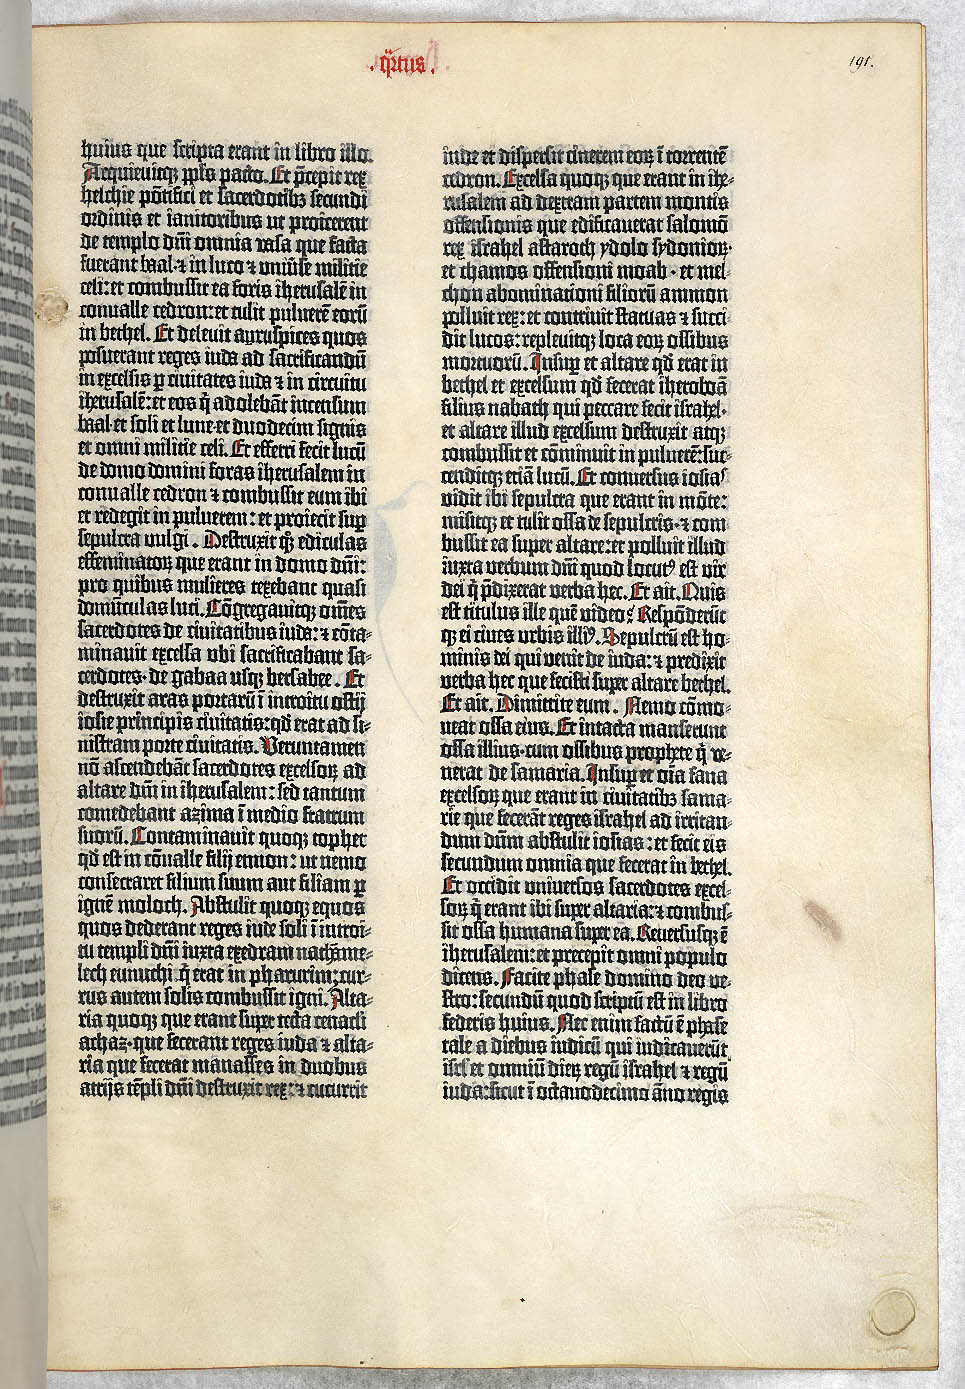 .qͬtus.
191.
huius que scripta erant in libro illo.
Acquieuitqꝫ ppl̄s pacto. Et p̄cepit rex
helchie pōtifici et sacerdotibꝫ secundi
ordinis et ianitoribus ut proicerent
de templo dn̄i omnia vasa que facta
fuerant baal·⁊ in luco ⁊ vniūse militie
celi: et combussit ea foris iherusalē in
conualle cedron: et tulit puluerē eorū
in bethel. Et deleuit aruspices quos
posuerant reges iuda ad sacrificandū
in excelsis p̲ ciuitates iuda ⁊ in circuitu
iherusalē: et eos q̄ adolebāt incensum
baal·et soli et lune·et duodecim signis
et omni militie celi. Et efferri fecit lucū
de domo domini foras iherusalem in
conualle cedron ⁊ combussit eum ibi
et redegit in puluerem: et proiecit sup̲
sepulcra vulgi. Destruxit qꝫ ediculas
effeminatoꝝ que erant in domo dn̄i:
pro quibus mulieres texebant quasi
domūculas luci. Cōgregauitqꝫ om̄es
sacerdotes de ciuitatibus iuda: ⁊ cōta-
minauit excelsa vbi sacrificabant sa-
cerdotes·de gabaa usqꝫ bersabee. Et
destruxit aras portarū ī introitu ostij
iosie principis ciuitatis: qd̄ erat ad si-
nistram porte ciuitatis. Veruntamen
nō ascendebāt sacerdotes excelsoꝝ ad
altare dn̄i in iherusalem: sed tantum
comedebant azima ī medio fratrum
suorū. Contaminauit quoqꝫ tophet
qd̄ est in cōualle filij ennon: ut nemo
consecraret filium suum aut filiam p̲
ignē moloch. Abstulit quoqꝫ equos
quos dederant reges iude soli ī introi-
tu templi dn̄i iuxta exedram nathāme-
lech eunuchi q̄ erat in pharurim: cur-
rus autem solis combussit igni. Alta-
ria quoqꝫ que erant super tecta cenacli
achaz·que fecerant reges iuda ⁊ alta-
ria que fecerat manasses in duobus
atrijs tēpli dn̄i destruxit rex: ⁊ cucurrit
inde et dispersit cinerem eoꝝ ī torrentē
cedron. Excelsa quoqꝫ que erant in ihe-
rusalem ad dextram partem montis
offensionis que edificauerat salomō
rex israhel astaroth ydolo sydonioꝝ·
et chamos offensioni moab·et mel-
chon abominationi filiorū ammon
polluit rex: et contriuit statuas ⁊ succi-
dit lucos: repleuitqꝫ loca eoꝝ ossibus
mortuorū. Insup̲ et altare qd̄ erat in
bethel et excelsum qd̄ fecerat iheroboā
filius nabath qui peccare fecit israhel·
et altare illud excelsum destruxit atqꝫ
combussit et cōminuit in puluerē: suc-
cenditqꝫ etiā lucū. Et conuersus iosiaꝰ
vidit ibi sepulcra que erant in mōte:
misitqꝫ et tulit ossa de sepulcris·⁊ com
bussit ea super altare: et polluit illud
iuxta verbum dn̄i quod locutꝰ est vir
dei q̄ p̄dixerat verba hec. Et ait. Quis
est titulus ille quē video? Respōderūt
qꝫ ei ciues urbis illiꝰ. Sepulcrū est ho-
minis dei qui venit de iuda: ⁊ predixit
verba hec que fecisti super altare bethel.
Et ait. Dimittite eum. Nemo cōmo-
ueat ossa eius. Et intacta manserunt
ossa illius·cum ossibus prophete q̄ ve-
nerat de samaria. Insup̲ et oīa fana
excelsoꝝ que erant in ciuitatibꝫ sama-
rie que fecerāt reges israhel ad irritan-
dum dn̄m abstulit iosias: et fecit eis
secundum omnia que fecerat in bethel.
Et occidit vniuersos sacerdotes excel-
soꝝ q̄ erant ibi super altaria: ⁊ combus-
sit ossa humana super ea. Reuersusqꝫ ē
iherusalem: et precepit omni populo
dicens. Facite phase domino deo ve-
stro: secundū quod scriptū est in libro
federis huius. Nec enim factū ē phase
tale a diebus iudicū qui iudicauerūt
isrl̄ et omniū dieꝝ regū israhel ⁊ regū
iuda: sicut ī octauodecimo āno regis